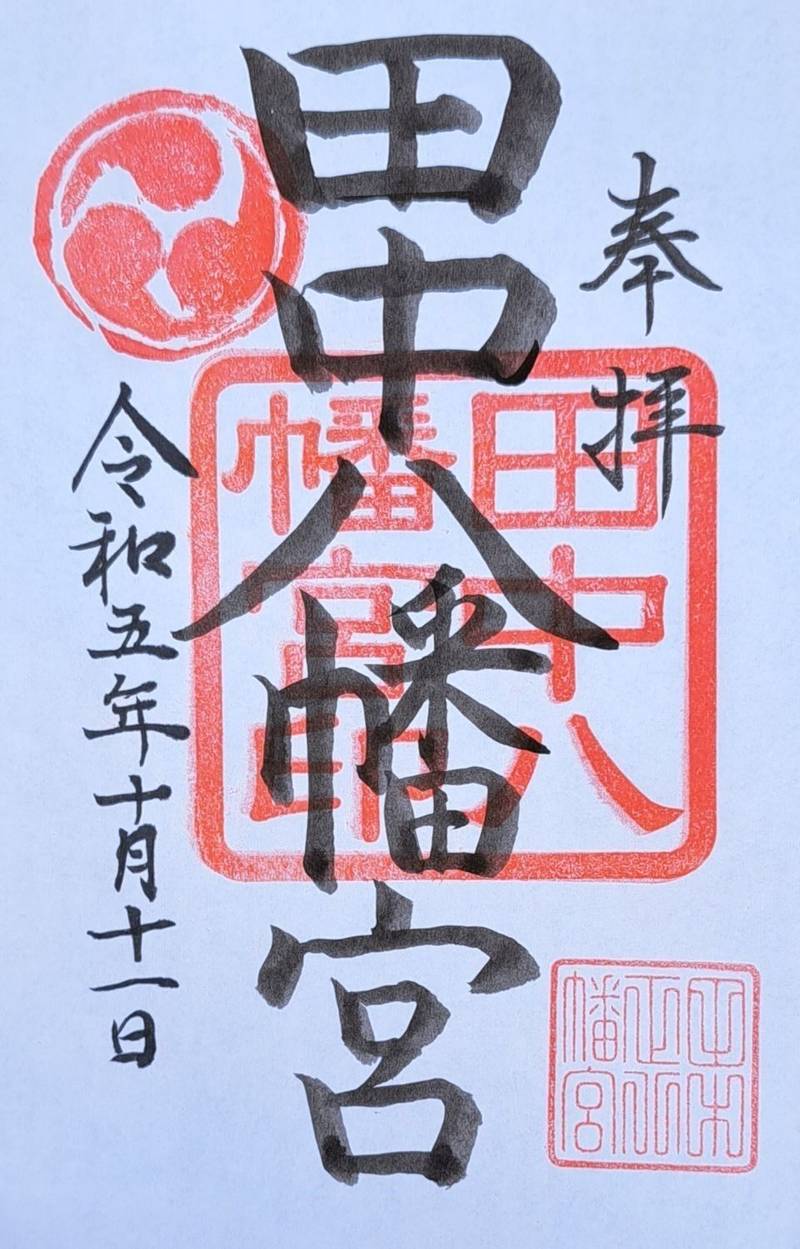 奉拝
田中八幡宮
令和五年十月十一日
田中八
幡宮印
幡宮